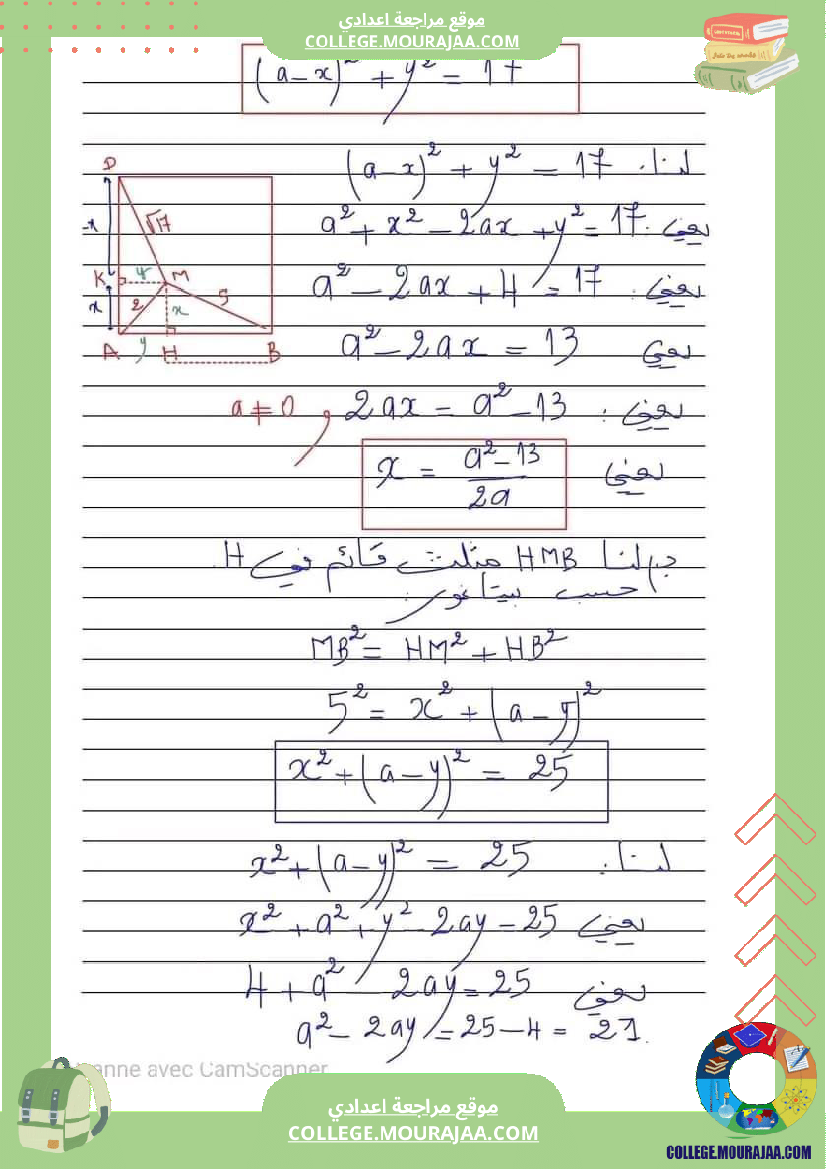 موقع مراجعة اعدادي
COLLEGE.MOURAJAA.COM
(a-x)² + y² = 17
لنا: (a-x)² + y² = 17
يعني: a² + x² - 2ax + y² = 17
يعني: a² - 2ax + 4 = 17
يعني a² - 2ax = 13
يعني: 2ax = a² - 13 , a ≠ 0
يعني x = (a² - 13) / 2a
D
√17
-x
K
y
M
5
x
2
x
A
y
H
B
لنا HMB مثلث قائم في H.
حسب بيتاغور:
MB² = HM² + HB²
5² = x² + (a-y)²
x² + (a-y)² = 25
لنا: x² + (a-y)² = 25
يعني x² + a² + y² - 2ay = 25
يعني 4 + a² - 2ay = 25
a² - 2ay = 25 - 4 = 21.
anne avec CamScanner
موقع مراجعة اعدادي
COLLEGE.MOURAJAA.COM
COLLEGE.MOURAJAA.COM